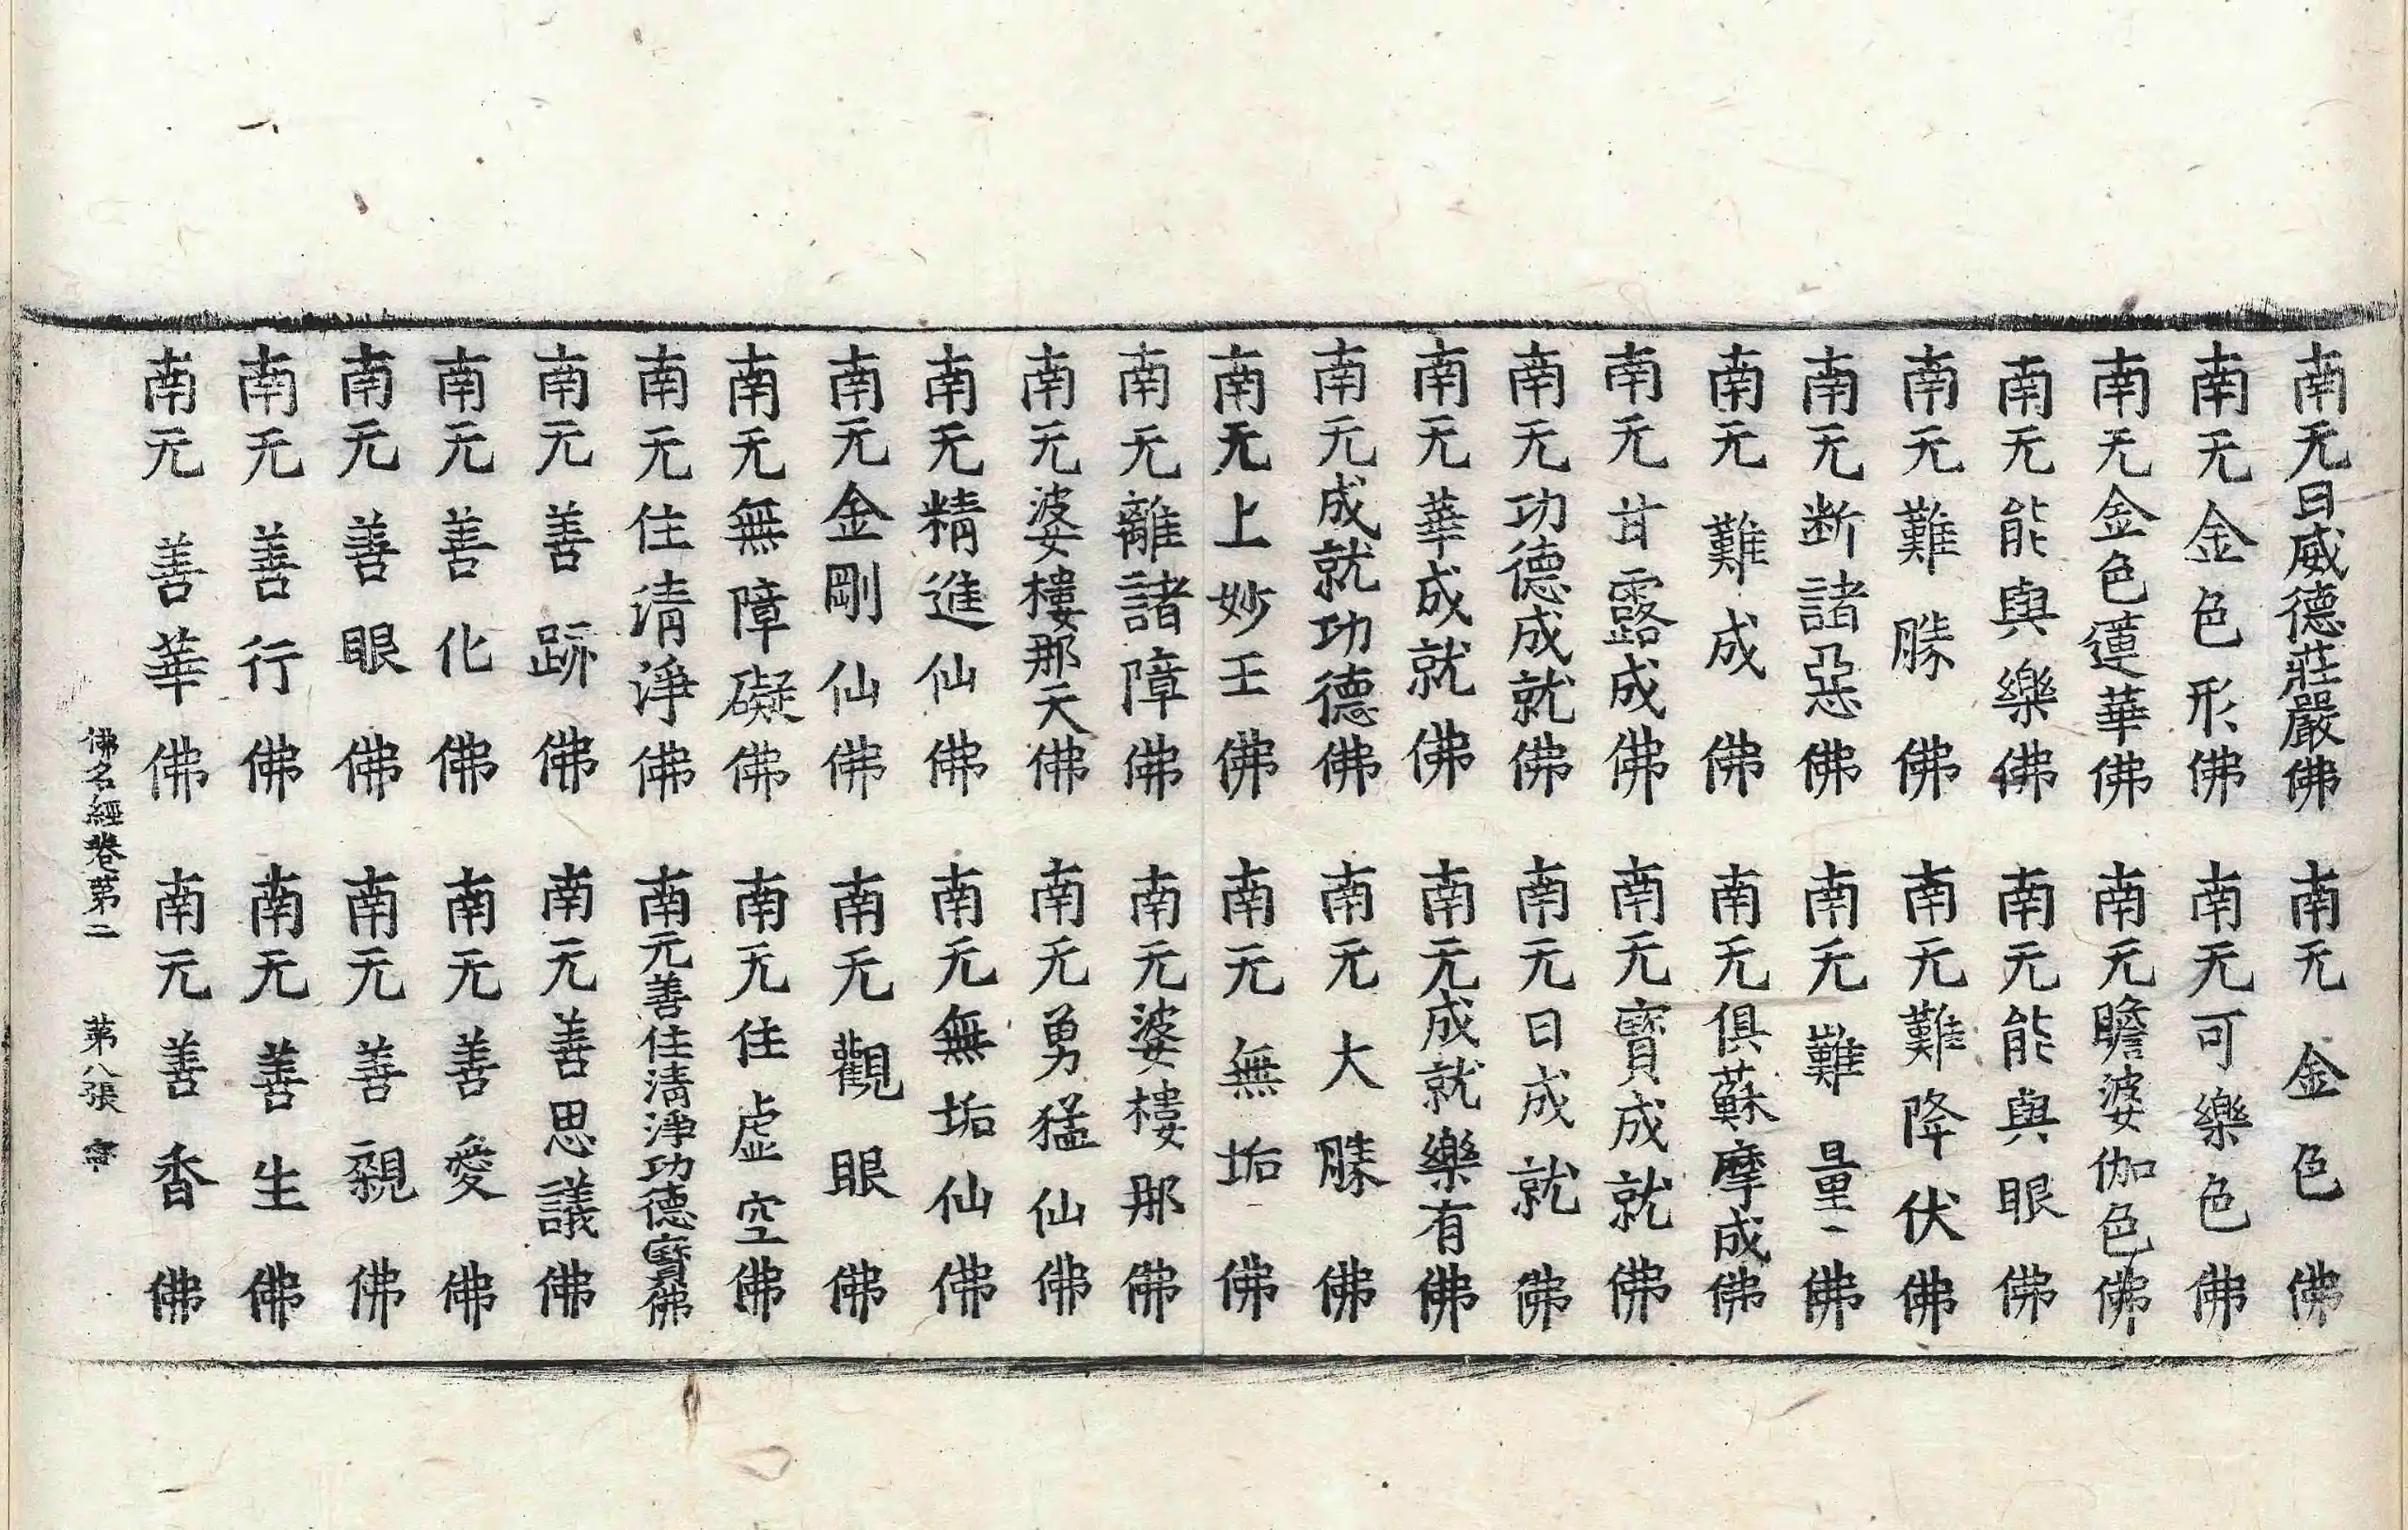 南无日威德莊嚴佛　南无金色佛
南无金色形佛　南无可樂色佛
南无金色蓮華佛　南无瞻婆伽色佛
南无能與樂佛　南无能與眼佛
南无難勝佛　南无難降伏佛
南无断諸惡佛　南无難量佛
南无難成佛　南无俱蘇摩成佛
南无甘露成佛　南无寶成就佛
南无功德成就佛　南无日成就佛
南无華成就佛　南无成就樂有佛
南无成就功德佛　南无大勝佛
南无上妙王佛　南无無垢佛
南无離諸障佛　南无婆樓那佛
南无婆樓那天佛　南无勇猛仙佛
南无精進仙佛　南无無垢仙佛
南无金剛仙佛　南无觀眼佛
南无無障礙佛　南无住虛空佛
南无住清淨佛　南无善住清淨功德寶佛
南无善跡佛　南无善思議佛
南无善化佛　南无善愛佛
南无善眼佛　南无善親佛
南无善行佛　南无善生佛
南无善華佛　南无善香佛
佛名經卷第二　第八張